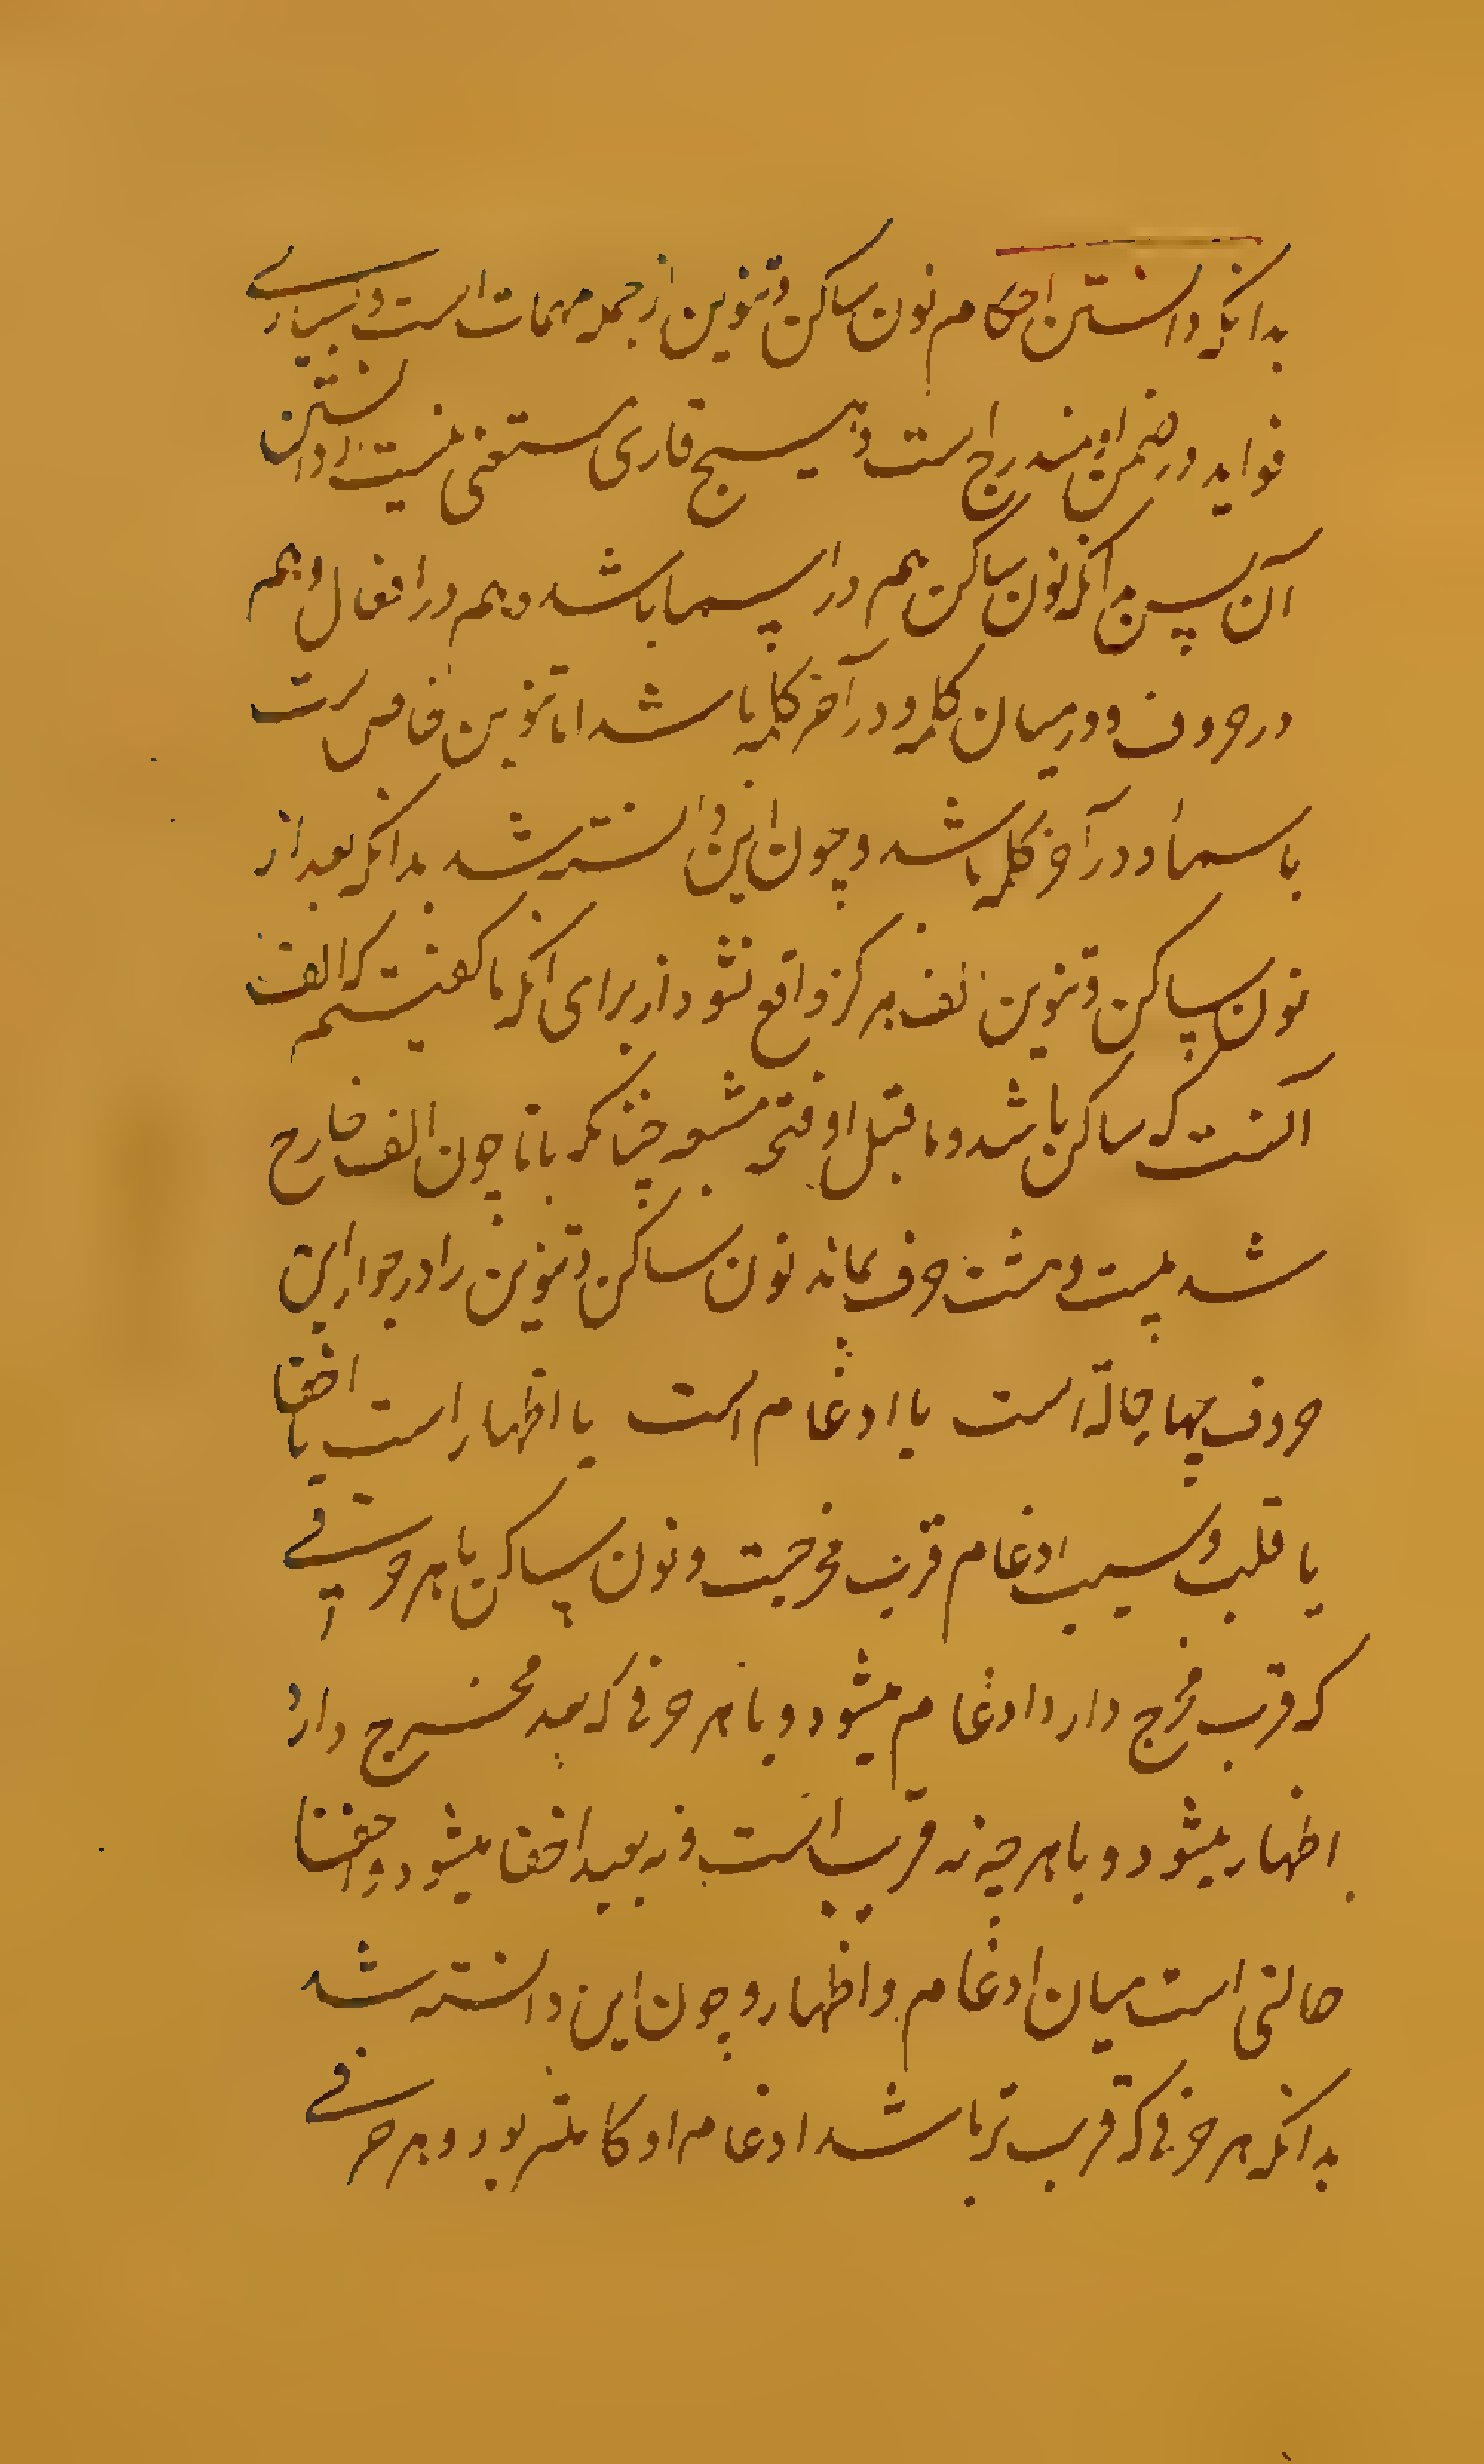 بدانکه دانستن احکام نون ساکن و تنوین از جمله مهمات است و بسیاری
فواید در ضمن او مندرج است و هیچ قاری مستغنی نیست از دانستن
آن پس بدانکه نون ساکن هم در اسما باشد و هم در افعال و هم
در حروف و در میان کلمه و در آخر کلمه باشد اما تنوین خاص است
باسماء و در آخر کلمه باشد و چون این دانسته شد بدانکه بعد از
نون ساکن و تنوین الف هرگز واقع نشود از برای آنکه ما گفتیم که الف
آنست که ساکن باشد و ماقبل او فتحه مشبعه چنانکه با تا چون الف خارج
شد بیست و هشت حرف بماند نون ساکن و تنوین را در جوار این
حروف چهار حالة است یا ادغام است یا اظهار است یا اخفا
یا قلب و سبب ادغام قرب مخرجست و نون ساکن با هر حرفی
که قرب مخرج دارد ادغام میشود و با هر حرفی که بعد مخرج دارد
اظهار میشود و با هر چه نه قریب است و نه بعید اخفا میشود و اخفا
حالتی است میان ادغام و اظهار و چون این دانسته شد
بدانکه هر حرفی که قریب تر باشد ادغام او کاملتر بود و هر حرفی